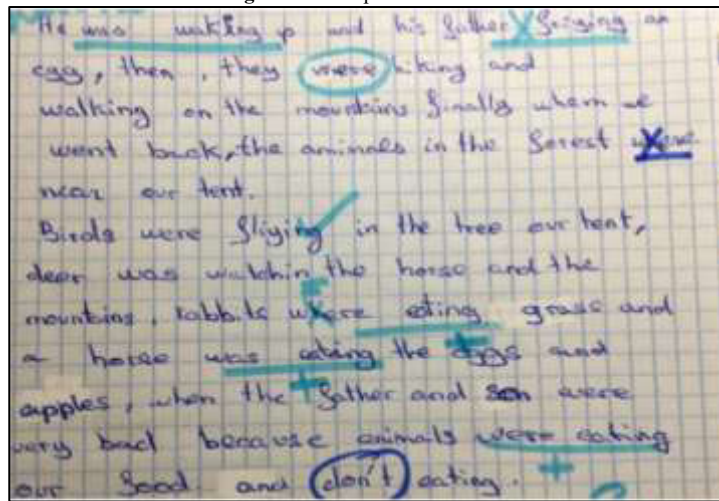 He was waking p and his father friying an
egg, then, they were hiking and
walking on the mountains finally when we
went back, the animals in the forest were
near our tent.
Birds were fliying in the tree our tent,
deer was watchin the horse and the
mountains, rabbits where eting grass and
a horse was eating the eggs and
apples, when the father and son were
very bad because animals were eating
our food. and don't eating.